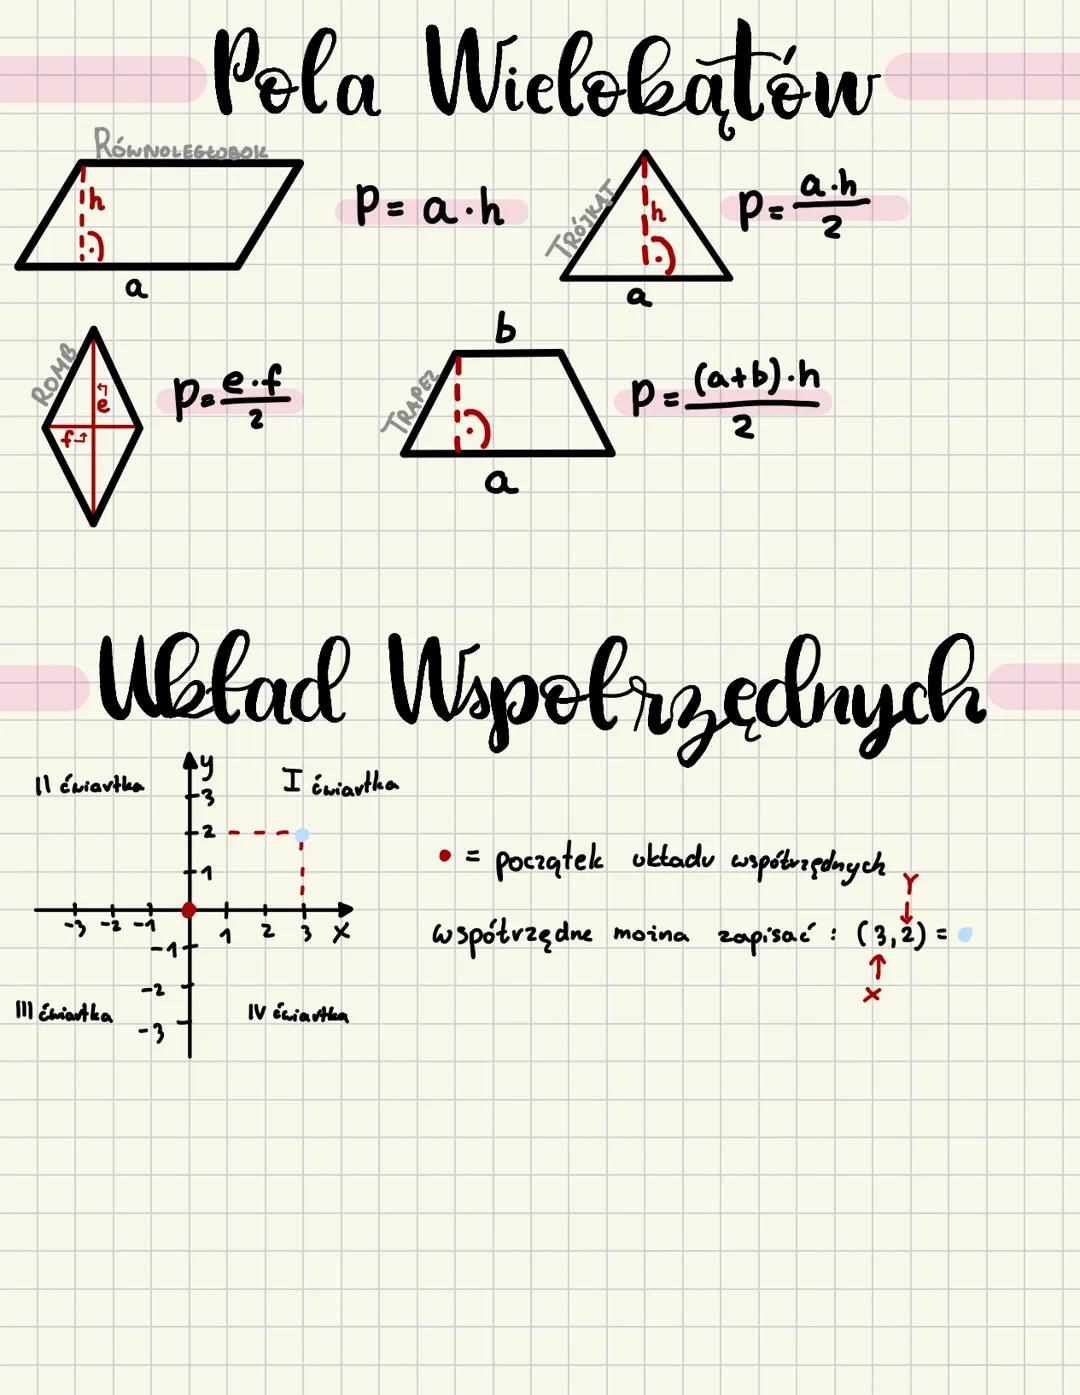 Pola Wielokątów
RÓWNOLEGŁOBOK
h
a
P = a·h
TRÓJKĄT
h
a
P = a·h
2
ROMB
e
f
P = e·f
2
TRAPEZ
b
a
P = (a+b)·h
2
Układ Współrzędnych
II ćwiartka
I ćwiartka
y
3
2
1
-3 -2 -1 1 2 3 x
-1
-2
-3
III ćwiartka
IV ćwiartka
= początek układu współrzędnych
Y
współrzędne można zapisać : (3,2) =
X